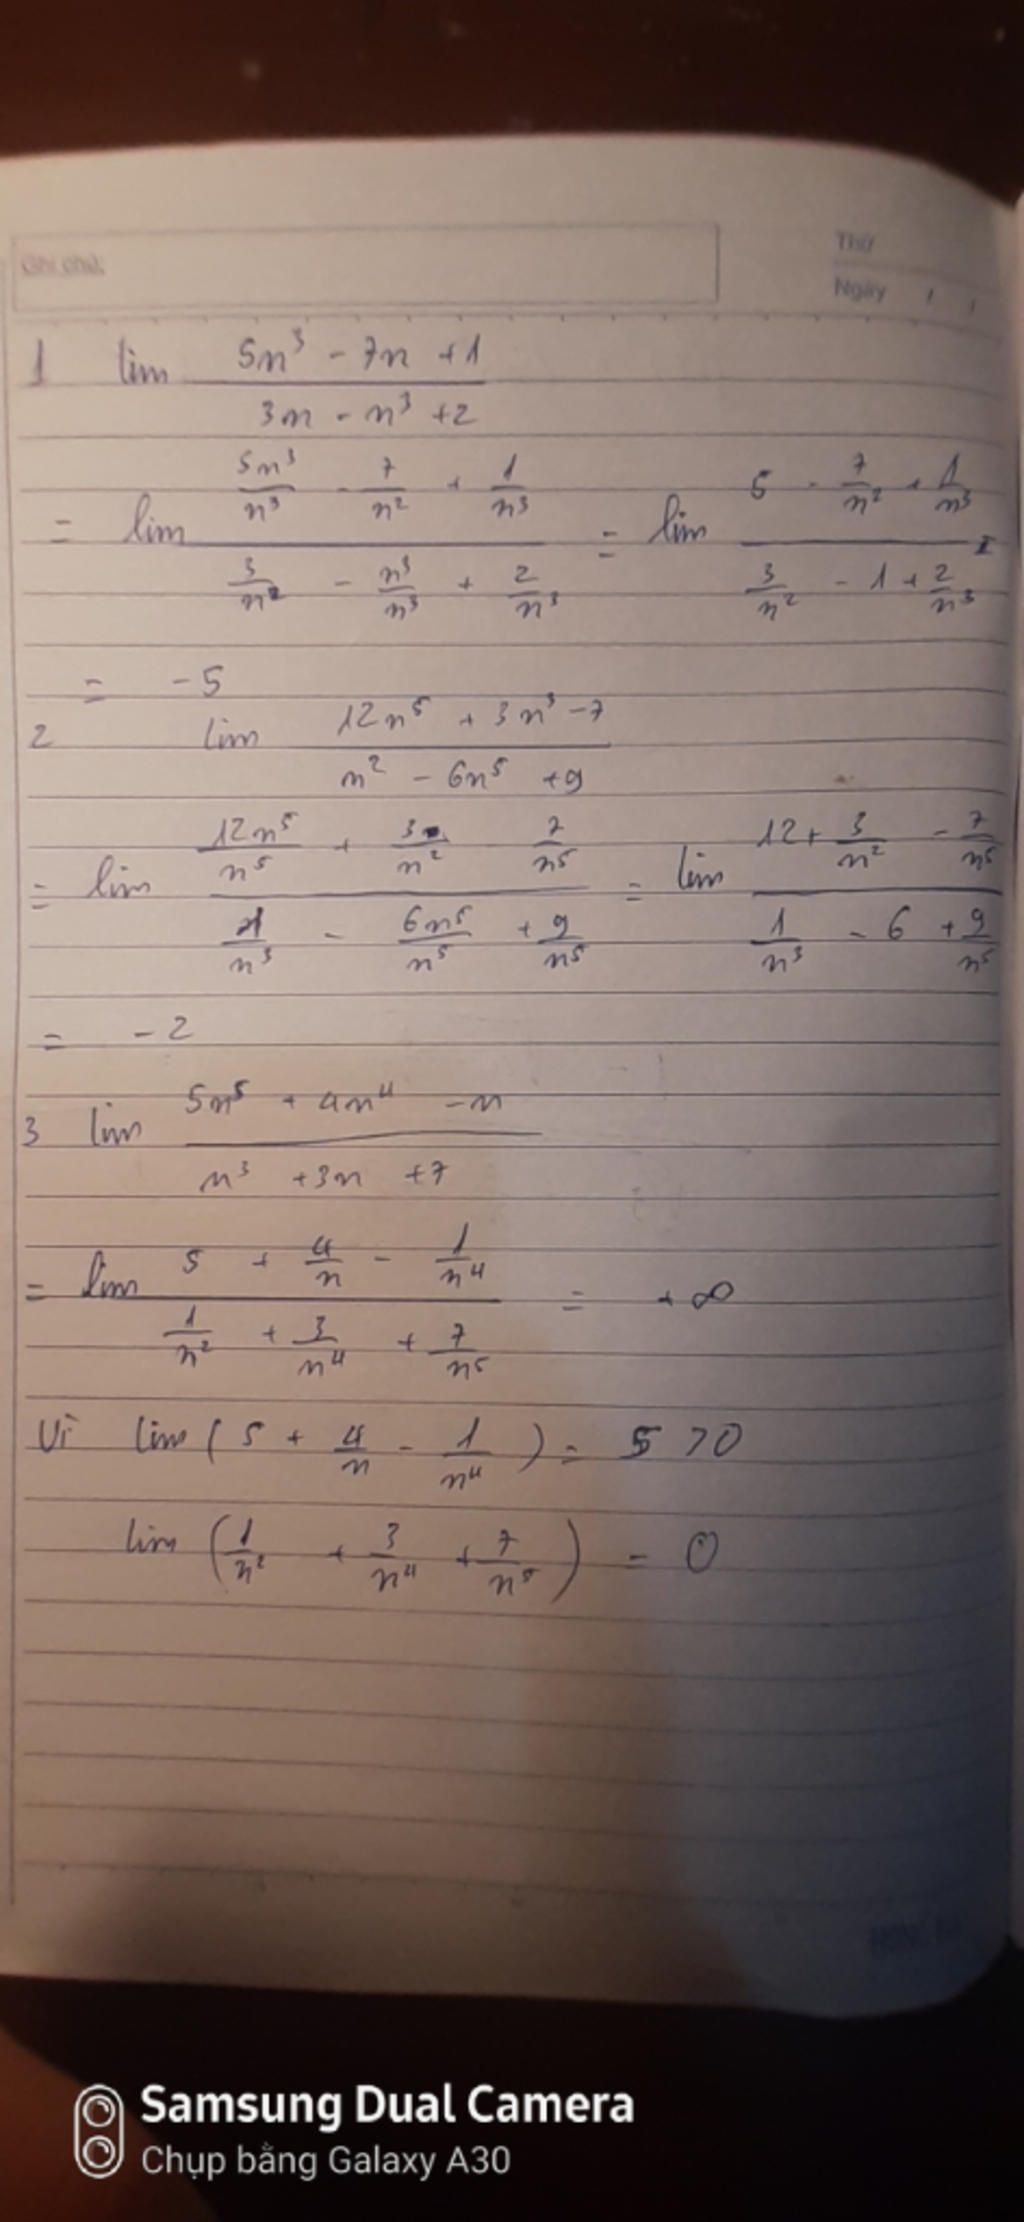 Ghi chú:
Thứ
Ngày / /
1 lim (5n³ - 7n + 1)/(3n - n³ + 2)
= lim (5n³/n³ - 7/n² + 1/n³)/(3/n² - n³/n³ + 2/n³) = lim (5 - 7/n² + 1/n³)/(3/n² - 1 + 2/n³)
= -5
2 lim (12n⁵ + 3n³ - 7)/(n² - 6n⁵ + 9)
= lim (12n⁵/n⁵ + 3/n² - 7/n⁵)/(1/n³ - 6n⁵/n⁵ + 9/n⁵) = lim (12 + 3/n² - 7/n⁵)/(1/n³ - 6 + 9/n⁵)
= -2
3 lim (5n⁵ + 4n⁴ - n)/(n³ + 3n + 7)
= lim (5 + 4/n - 1/n⁴)/(1/n² + 3/n⁴ + 7/n⁵) = +∞
Vì lim (5 + 4/n - 1/n⁴) = 5 > 0
lim (1/n² + 3/n⁴ + 7/n⁵) = 0
Samsung Dual Camera
Chụp bằng Galaxy A30